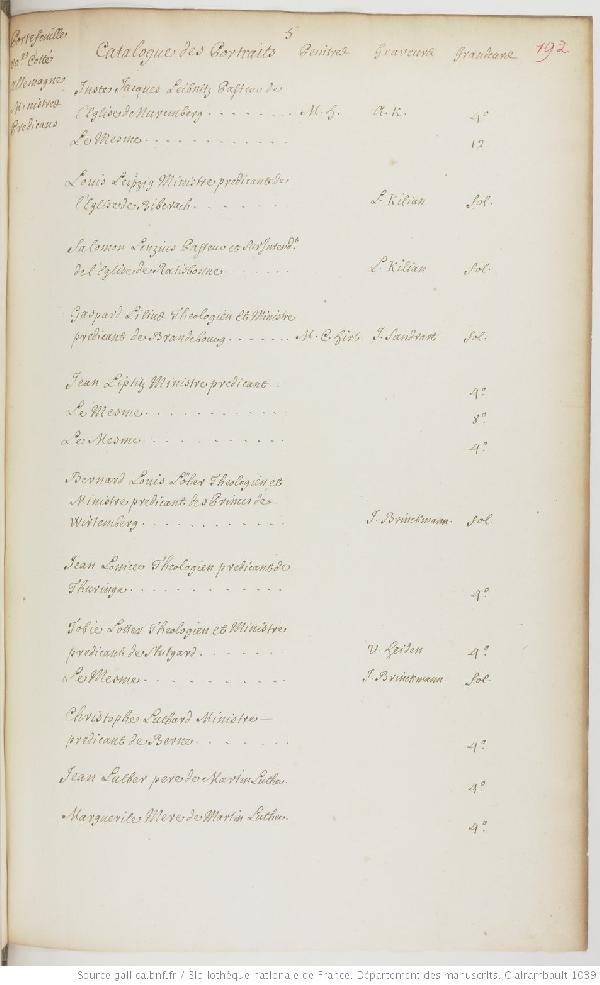 5
Portefeuille
Cotté
allemagne
Ministres
Predicans
Catalogue des Portraits Peintres Graveurs Grandeurs 192
Juste Jacques Leibnitz Pasteur de
l'Eglise de Nuremberg . . . . . . . M. H. A. K. 4º
Le Mesme . . . . . . . . . . . 12
Louis Leipzig Ministre predicant de
l'Eglise de Biberach . . . . . . . L. Kilian fol.
Salomon Lenzius Pasteur et
de l'Eglise de Ratisbonne . . . . . L. Kilian fol.
Gaspard Lilius Theologien et Ministre
predicant de Brandebourg . . . . . . M. C. Hirt J. Sandrart fol.
Jean Liptitz Ministre predicant 4º
Le Mesme . . . . . . . . . . . 8º
Le Mesme . . . . . . . . . . . 4º
Bernard Louis Löher Theologien et
Ministre predicant des Princes de
Wirtemberg . . . . . . . . . . . J. Brinckmann fol.
Jean Lonice Theologien predicant de
Thuringe . . . . . . . . . . . . 4º
Tobie Lotter Theologien et Ministre
predicant de Stutgard . . . . . . . V. Leiden 4º
Le Mesme . . . . . . . . . . . J. Brinckmann fol.
Christophe Luthard Ministre —
predicant de Berne . . . . . . . 4º
Jean Luther pere de Martin Luther. 4º
Marguerite Mere de Martin Luther. 4º
Source gallica.bnf.fr / Bibliothèque nationale de France. Département des manuscrits. Clairambault 1039